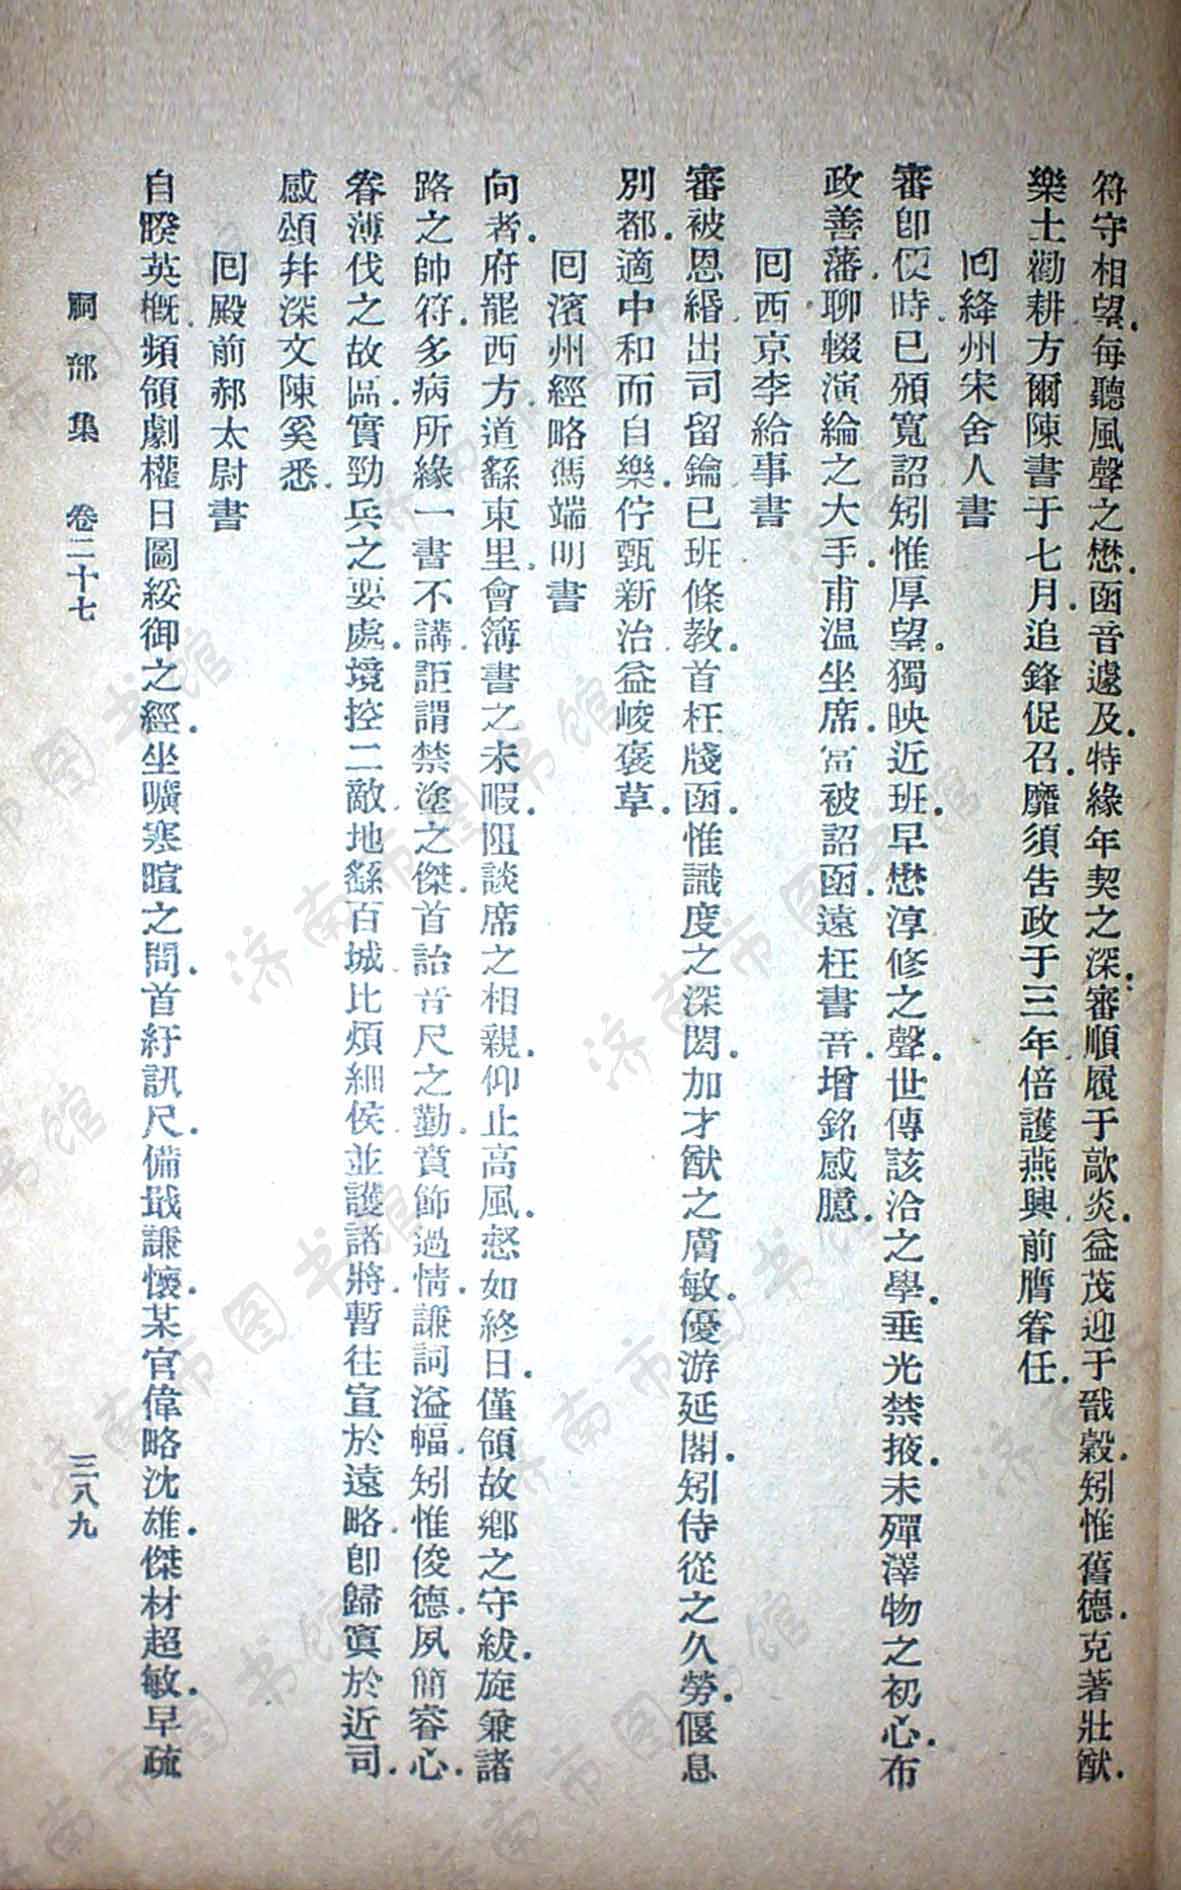 符守相望每聽風聲之懋函音遽及特緣年契之深審順履于歊炎益茂迎于戩穀矧惟舊德克著壯猷
樂土勸耕方爾陳書于七月追鋒促召靡須告政于三年倍護燕興前膺眷任
回絳州宋舍人書
審卽便時已頒寬詔矧惟厚望獨映近班早懋淳修之聲世傳該洽之學垂光禁掖未殫澤物之初心布
政善藩聊輟演綸之大手甫溫坐席當被詔函遠枉書音增銘感臆
回西京李給事書
審被恩綍出司留鑰已班條教首枉牋函惟識度之深閎加才猷之膚敏優游延閣矧侍從之久勞偃息
別都適中和而自樂佇甄新治益峻褒草
回濱州經略馮端明書
向者府罷西方道繇東里會簿書之未暇阻談席之相親仰止高風惄如終日僅領故鄉之守紱旋兼諸
路之帥符多病所緣一書不講詎謂禁塗之傑首詒音尺之勤賁飾過情謙詞溢幅矧惟俊德夙簡睿心
眷薄伐之故區實勁兵之要處境控二敵地繇百城比煩細侯並護諸將暫往宣於遠略卽歸寘於近司
感頌幷深文陳奚悉
回殿前郝太尉書
自暌英槪頻領劇權日圖綏御之經坐曠寒暄之問首紆訊尺備戢謙懷某官偉略沈雄傑材超敏早疏
祠部集 卷二十七 三八九
济南市图书馆